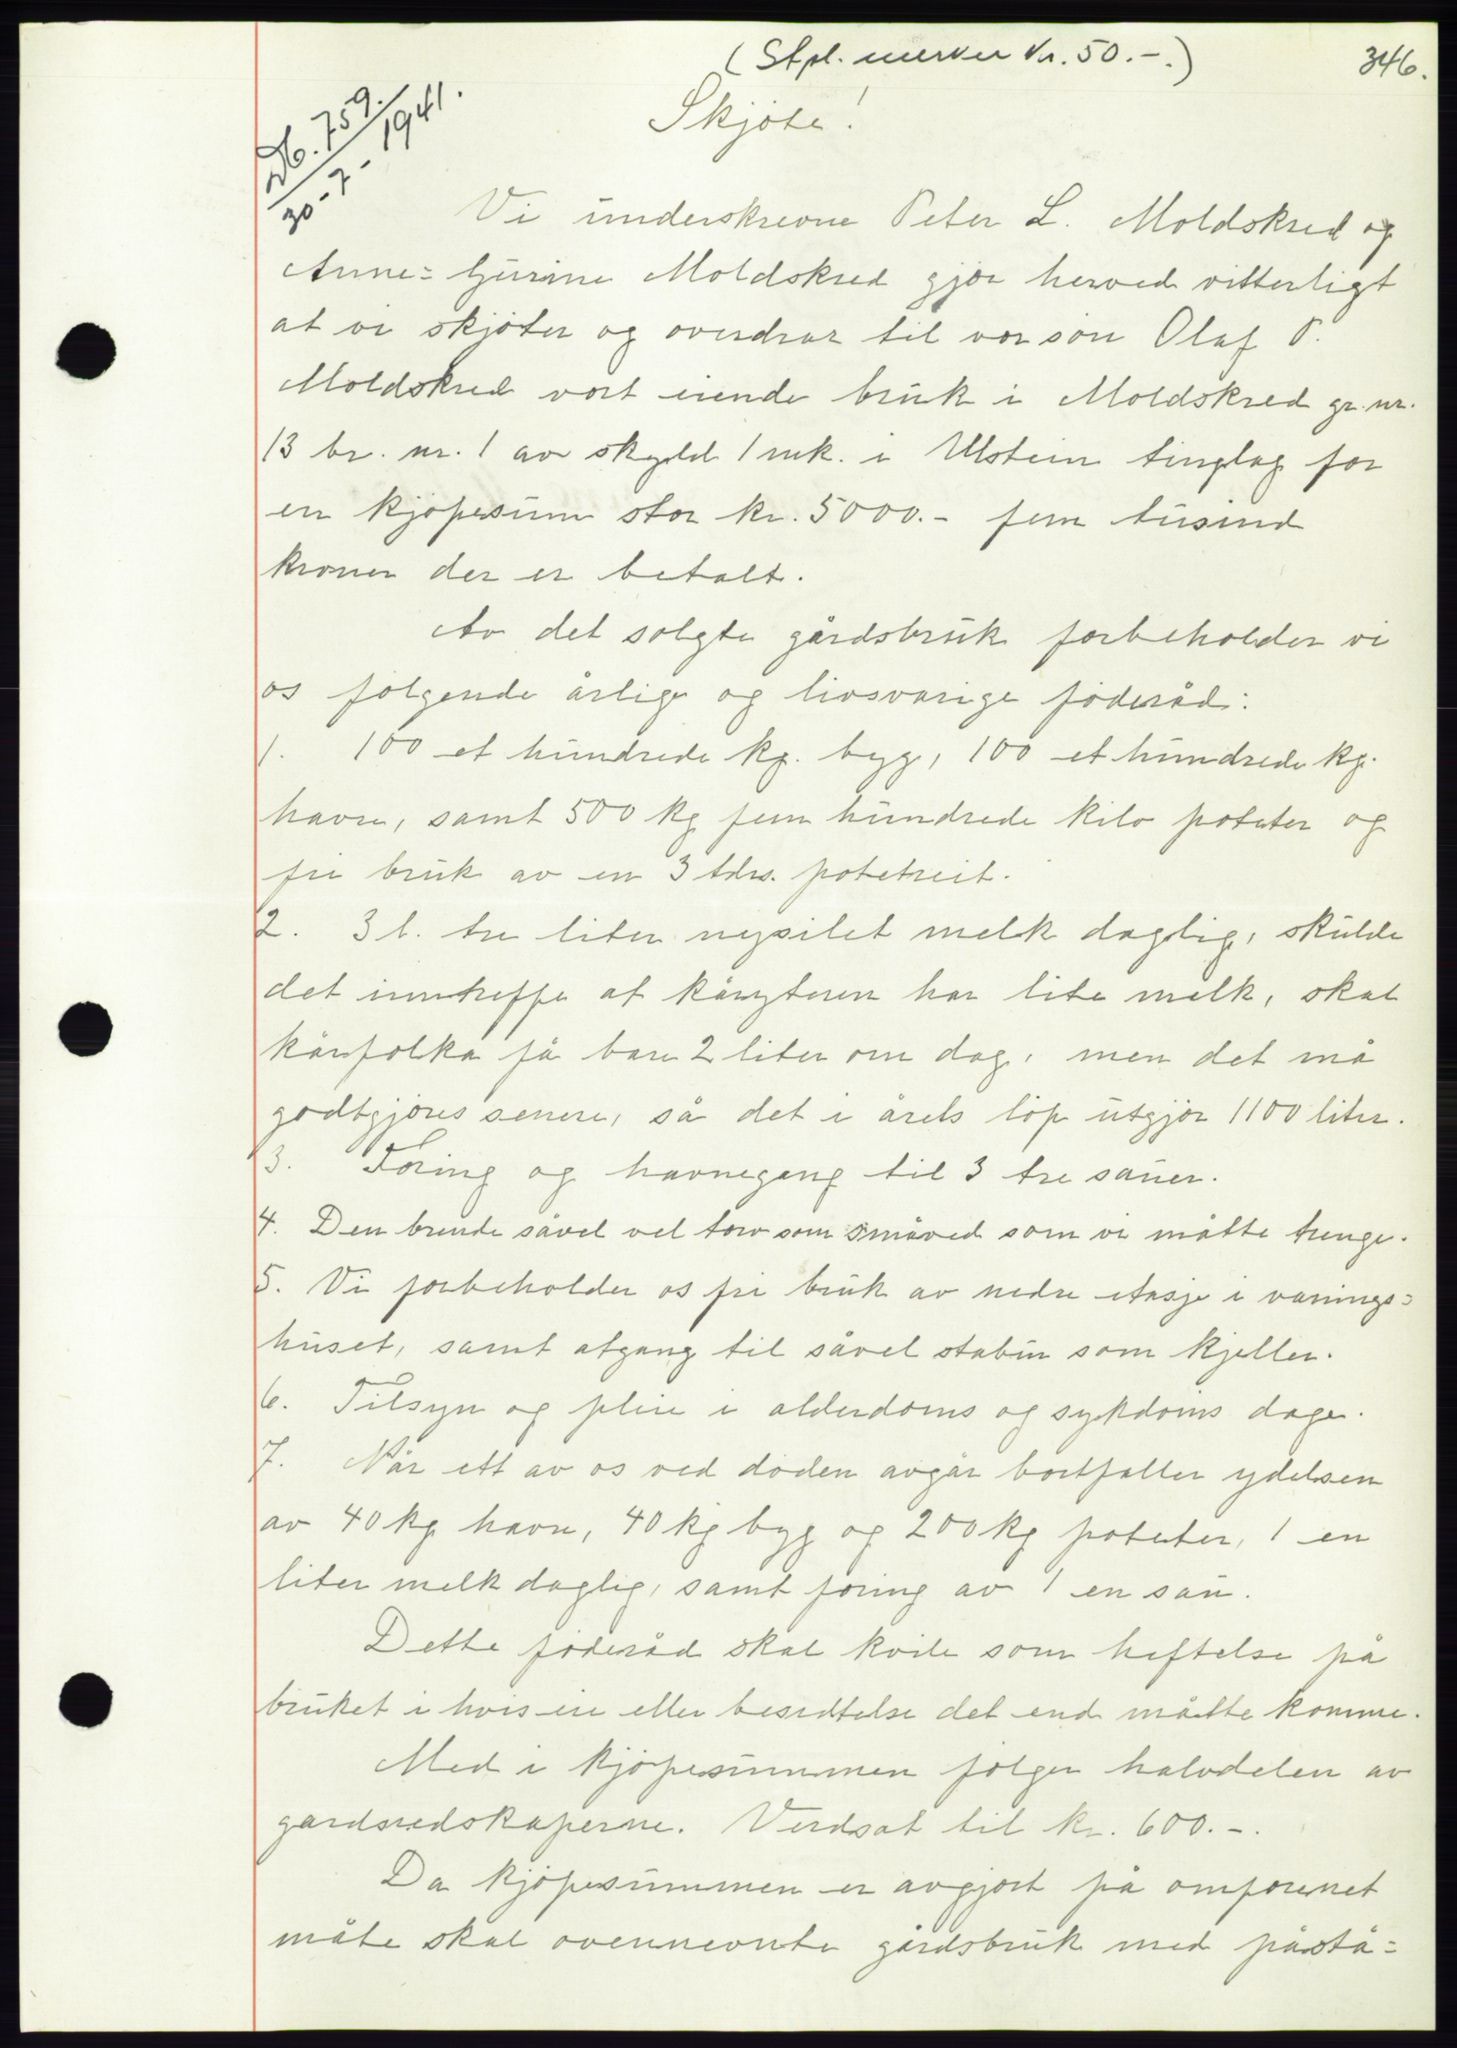 (Stpl. merker kr. 50.-.)
346.
Skjøte!
Db. 759.
30-7-1941.
Vi underskrevne Peter L. Moldskred og
Anne=Gurine Moldskred gjør herved vitterligt
at vi skjøter og overdrar til vor søn Olaf P.
Moldskred vort eiende bruk i Moldskred gr. nr.
13 br. nr. 1 av skyld 1 mk. i Ulstein tinglag for
en kjøpesum stor kr. 5000.- fem tusind
kroner der er betalt.
Av det solgte gårdsbruk forbeholder vi
os følgende årlige og livsvarige føderåd:
1. 100 et hundrede kg. byg, 100 et hundrede kg.
havre, samt 500 kg fem hundrede kilo poteter og
fri bruk av en 3 tdrs. potetreit.
2. 3 l. tre liter nysilet melk daglig, skulde
det inntreffe at kåryteren har lite melk, skal
kårfolka få bare 2 liter om dag, men det må
godtgjøres senere, så det i årets løp utgjør 1100 liter.
3. Foring og havnegang til 3 tre sauer.
4. Den brende såvel vel torv som småved som vi måtte trenge.
5. Vi forbeholder os fri bruk av nedre etasje i vånings=
huset, samt atgang til såvel stabur som kjeller.
6. Tilsyn og pleie i alderdoms og sykdoms dage.
7. Når ett av os ved døden avgår bortfaller ydelsen
av 40 kg havre, 40 kg byg og 200 kg poteter, 1 en
liter melk daglig, samt foring av 1 en sau.
Dette føderåd skal kvile som heftelse på
bruket i hvis eie eller besedtelse det end måtte komme.
Med i kjøpesummen følger halvdelen av
gardsredskaperne. Verdsat til kr. 600.-.
Da kjøpesummen er avgjort på omforenet
måte skal ovennevnte gårdsbruk med påstå=